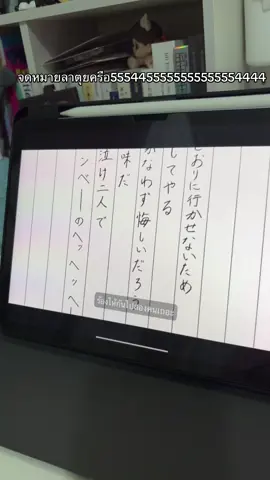 จดหมายลาตุยครือ55544555555555555554444
とおりに行かせないため
してやる
かなわず悔しいだろう
味だ
泣け二人で
ンベーのヘッヘッヘー
ร้องไห้กันไปสองคนเถอะ